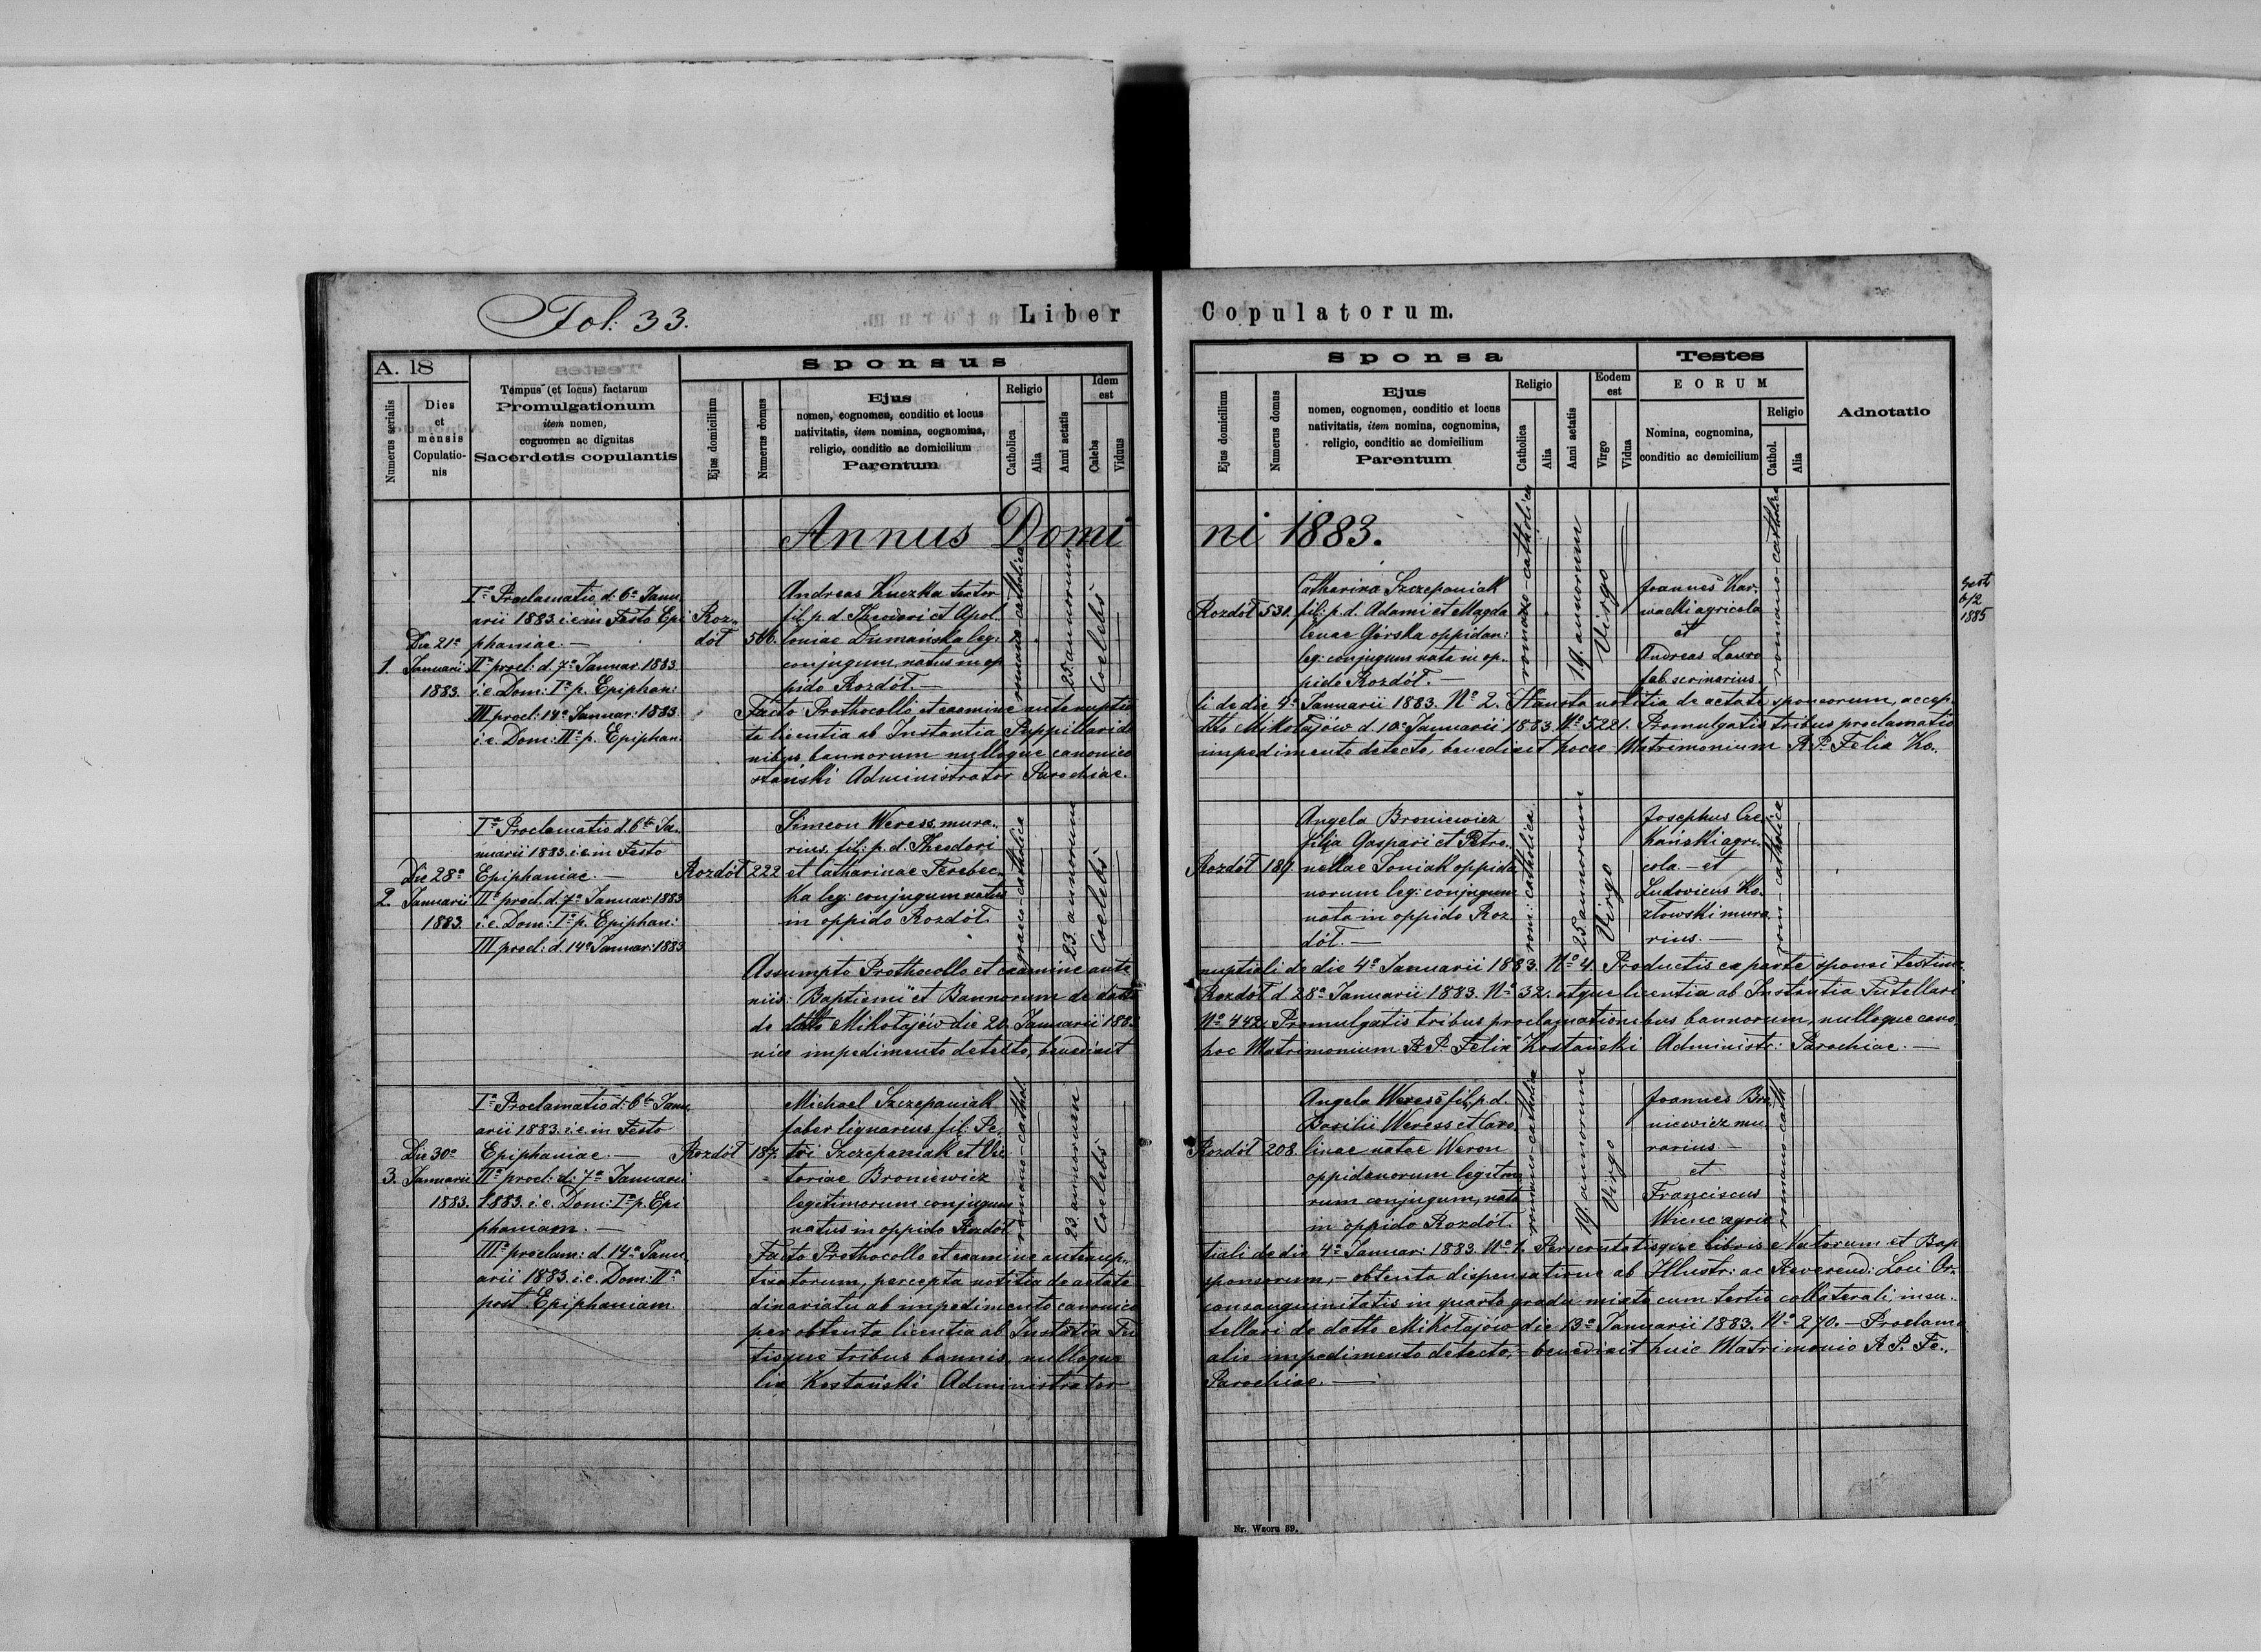 Fol: 33.
Liber Copulatorum.
A. 18
Numerus serialis
Dies et mensis Copulatio-nis
Tempus (et locus) factarum
Promulgationum
item nomen,
cognomen ac dignitas
Sacerdotis copulantis
Sponsus
Ejus domicilium
Numerus domus
Ejus
nomen, cognomen, conditio et locus
nativitatis, item nomina, cognomina,
religio, conditio ac domicilium
Parentum
Religio
Catholica
Alia
Anni aetatis
Idem est
Caelebs
Viduus
Sponsa
Ejus domicilium
Numerus domus
Ejus
nomen, cognomen, conditio et locus
nativitatis, item nomina, cognomina,
religio, conditio ac domicilium
Parentum
Religio
Catholica
Alia
Anni aetatis
Eodem est
Virgo
Vidua
Testes
EORUM
Nomina, cognomina,
conditio ac domicilium
Religio
Cathol.
Alia
Adnotatio
Annus Domini 1883.
1.
Die 21ª
Januarii
1883.
Iª Proclamatio d. 6ª Janu
arii 1883. i.e. in Festo Epi
phaniae. —
IIª procl: d. 7ª Januar. 1883.
i.e. Dom: Iª p. Epiphan:
III procl: 14ª Januar: 1883.
i.e. Dom: IIª p. Epiphan.
Roz„
dół
566.
Andreas Kuczka tector
fil. p. d. Theodori et Apol„
loniae Dumańska leg:
conjugum, natus in op
pido Rozdół. —
romano-catholica
25 annorum
Coelebs
Rozdół
531.
Catharina Szczepaniak
fil: p. d. Adami et Magda
lenae Górska oppidan:
leg: conjugum nata in op„
pido Rozdół. —
romano-catholica
19. annorum
Virgo
Joannes Kar„
wacki agricola
et
Andreas Lauro
fab. scrinarius
romano-cathol
1885
Facto Prothocollo et examine antenuptia
li de die 4ª Januarii 1883. Nº 2. Hausta notitia de aetate sponsorum, accep„
ta licentia ab Instantia Puppillari de
dtto Mikołajów d. 10ª Januarii 1883. Nº 5221. Promulgatis tribus proclamatio
nibus bannorum nulloque canonico
impedimento detecto, benedixit hocce Matrimonium R. P. Felix Ko„
stański Administrator Parochiae.
2.
Die 28ª
Januarii
1883.
Iª Proclamatio d. 6ta Ja„
nuarii 1883. i.e. in Festo
Epiphaniae. —
IIª procl. d. 7ª Januar: 1883
i.e. Dom: Iª p. Epiphan:
III procl: d. 14ª Januar: 1883.
Rozdół
222
Simeon Weress, mura„
rius, fil: p. d. Theodori
et Catharinae Terebec„
ka leg: conjugum natus
in oppido Rozdół.
graeco-catholica
23. annorum
Coelebs
Rozdół
189.
Angela Broniewicz
filia Gaspari et Petro„
nellae Soniak oppida
norum leg: conjugum
nata in oppido Roz
dół. —
rom: catholica
25 annorum
Virgo
Josephus
kański agri„
cola — et
Ludovicus Ko„
złowski mura
rius. —
rom-catholica
Assumpto Prothocollo et examine ante
nuptiali de die 4ª Januarii 1883. Nº 4. Productis ex parte sponsi testimo
niis: Baptismi et Bannorum de datto
Rozdół d 28ª Januarii 1883. Nº 32. atque licentia ab Instantia Tutellari
de datto Mikołajów die 20. Januarii 1883.
Nº 442. Promulgatis tribus proclamationibus bannorum, nulloque cano„
nico impedimento detecto, benedixit
hoc Matrimonium R. P. Felix Kostański Administr: Parochiae. —
3.
Die 30ª
Januarii
1883.
Iª Proclamatio d: 6ta Janu„
arii 1883. i.e. in Festo
Epiphaniae. —
IIª procl: d: 7ª Januarii
1883. i.e. Dom: Iª p. Epi
phaniam. —
IIIª proclam: d. 14ª Janu
arii 1883. i.e. Dom: IIª
post Epiphaniam.
Rozdół
187.
Michael Szczepaniak
faber lignarius, fil: Pe„
tri Szczepaniak et Vic
toriae Broniewicz
legitimorum conjugum
natus in oppido Rozdół
romano-cathol
23. annorum
Coelebs
Rozdół
208.
Angela Weress fil. p. d.
Basilii Weress et Caro
linae natae Weron
oppidanorum legitimo
rum conjugum, nata
in oppido Rozdół.
romano-catholica
19. annorum
Virgo
Joannes Bro„
niewicz mu„
rarius —
et
Franciscus
Wienc agric
romano-cath
Facto Prothocollo et examine antenup„
tiali de die 4ª Januar: 1883. Nº 1. Perscrutatisque libris Natorum et Bap
tisatorum, percepta notitia de aetate
sponsorum, — obtenta dispensatione ab Illustr: ac Reverend: Loci Or„
dinariatu ab impedimento canonico
consanguinitatis in quarto gradu mixto cum tertio collaterali, insu„
per obtenta licentia ab Instantia Tu
tellari de datto Mikołajów die 13ª Januarii 1883. Nº 270. — Proclama
tisque tribus bannis, nulloque
alio impedimento detecto, — benedixit huic Matrimonio R. P. Fe„
lix Kostański Administrator
Parochiae. —
Nr. Wzoru 39.